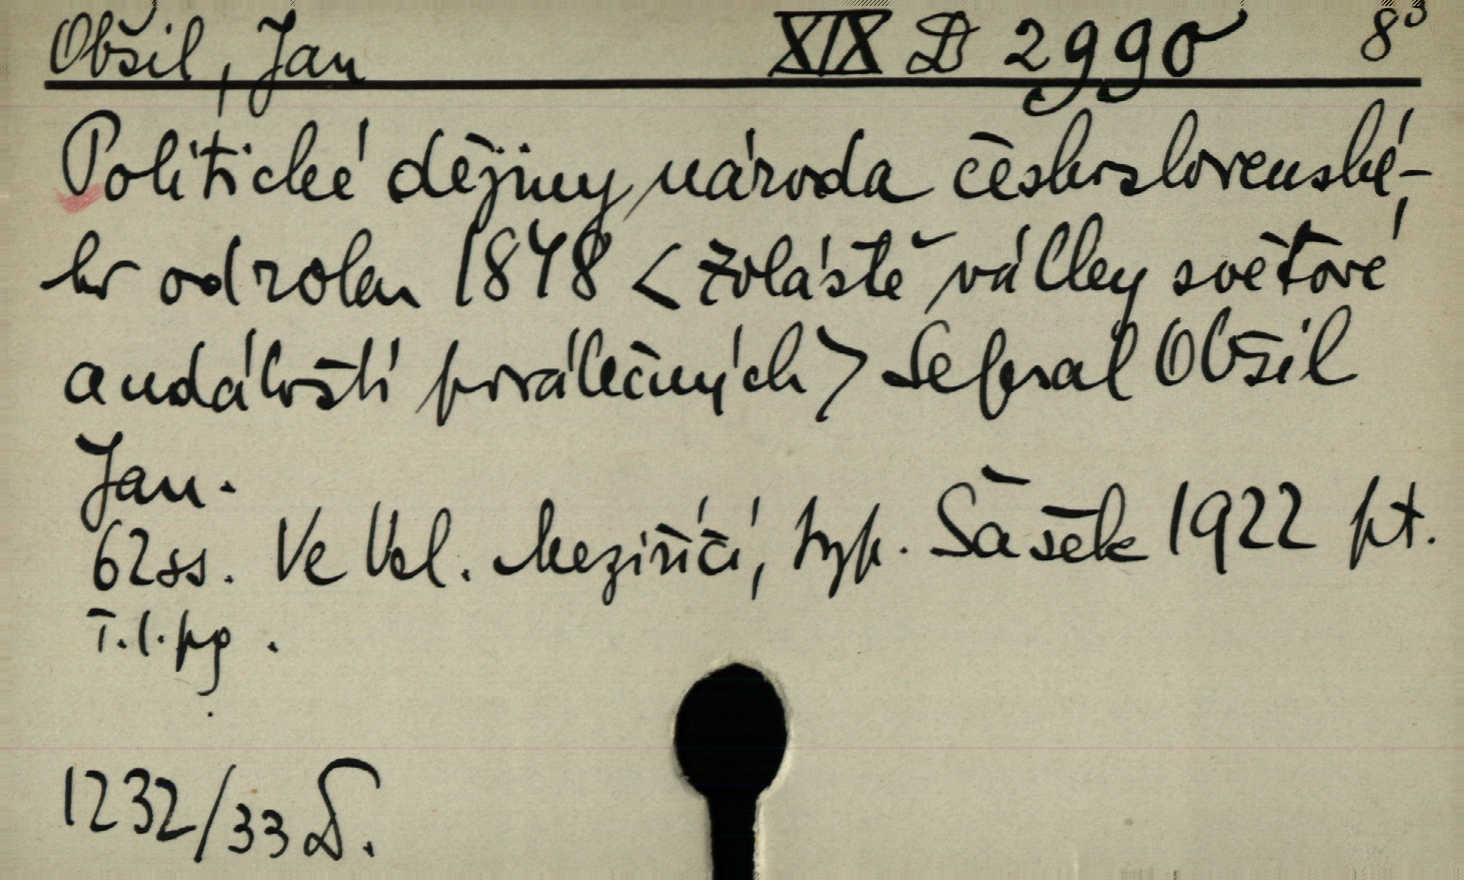 Obšil, Jan XIX D 2990 8°
Politické dějiny národa československé-
ho od roku 1848 < zvláště války světové
a událostí poválečných > Sepsal Obšil
Jan.
62 ss. Ve Vel. Meziříčí, typ. Šašek 1922 pt.
T.l.pg.
1232/33 D.